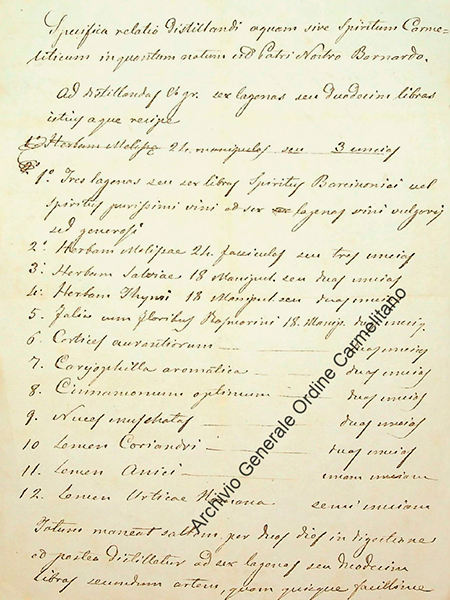 Specifica relatio Distillandi aquam sive Spiritum Carme-
liticum in quantum notum est Patri Nostro Bernardo.
Ad distillandas V. gr. sex lagenas seu Duodecim libras
istius aque recipe
1º Herbam Melissę 24 manipulos seu 3 uncias
1º. Tres lagenas seu sex libras Spiritus Barcinoniai vel
Spiritus purissimi vini ad sex lagenas vini vulgaris
sed generosi
2º. Herbam Melissae 24. fasciculos seu tres uncias
3º. Herbam Salviae 18 Manipul. seu duas uncias
4º. Herbam Thymi 18 Manipul. seu duas uncias
5. Folia cum floribus Rosmarini 18. Manip. duas uncias
6. Cortices aurantiorum duas uncias
7. Caryophilla aromatica duas uncias
8. Cinnamomum optimum duas uncias
9. Nuces muschatas duas uncias
10 Semen Coriandri duas uncias
11. Semen Anici unam unciam
12. Semen Urticae Romana semi unciam
maneant saltem per duos dies in digestione
et postea Distilletur ad sex lagenas seu Duodecim
libras secundum artem, quam quisque facillime
Archivio Generale Ordine Carmelitano